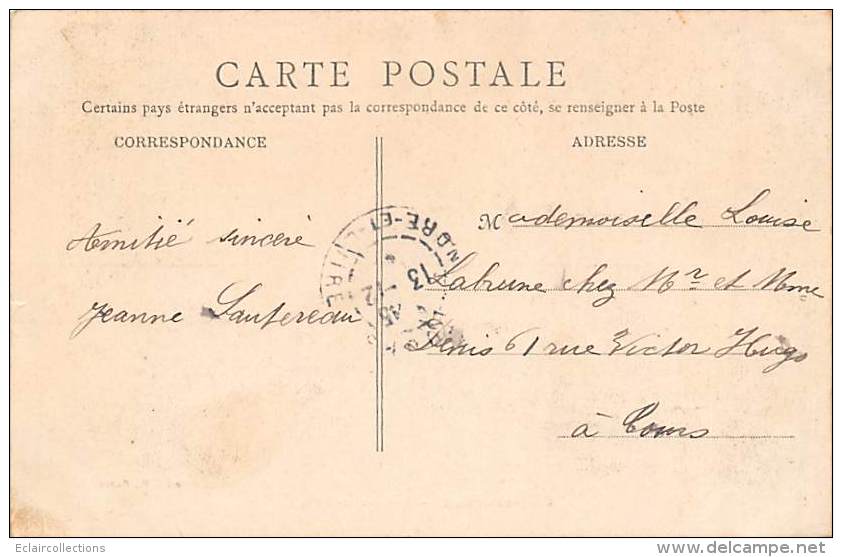 CARTE POSTALE
Certains pays étrangers n'acceptant pas la correspondance de ce côté, se renseigner à la Poste
CORRESPONDANCE
ADRESSE
Amitié sincère
Jeanne Sautereau
Mademoiselle Louise
Labrune chez Mr et Mme
Denis 61 rue Victor Hugo
à Tours
INDRE-ET-
13
12
Eclaircollections
www.delcampe.net